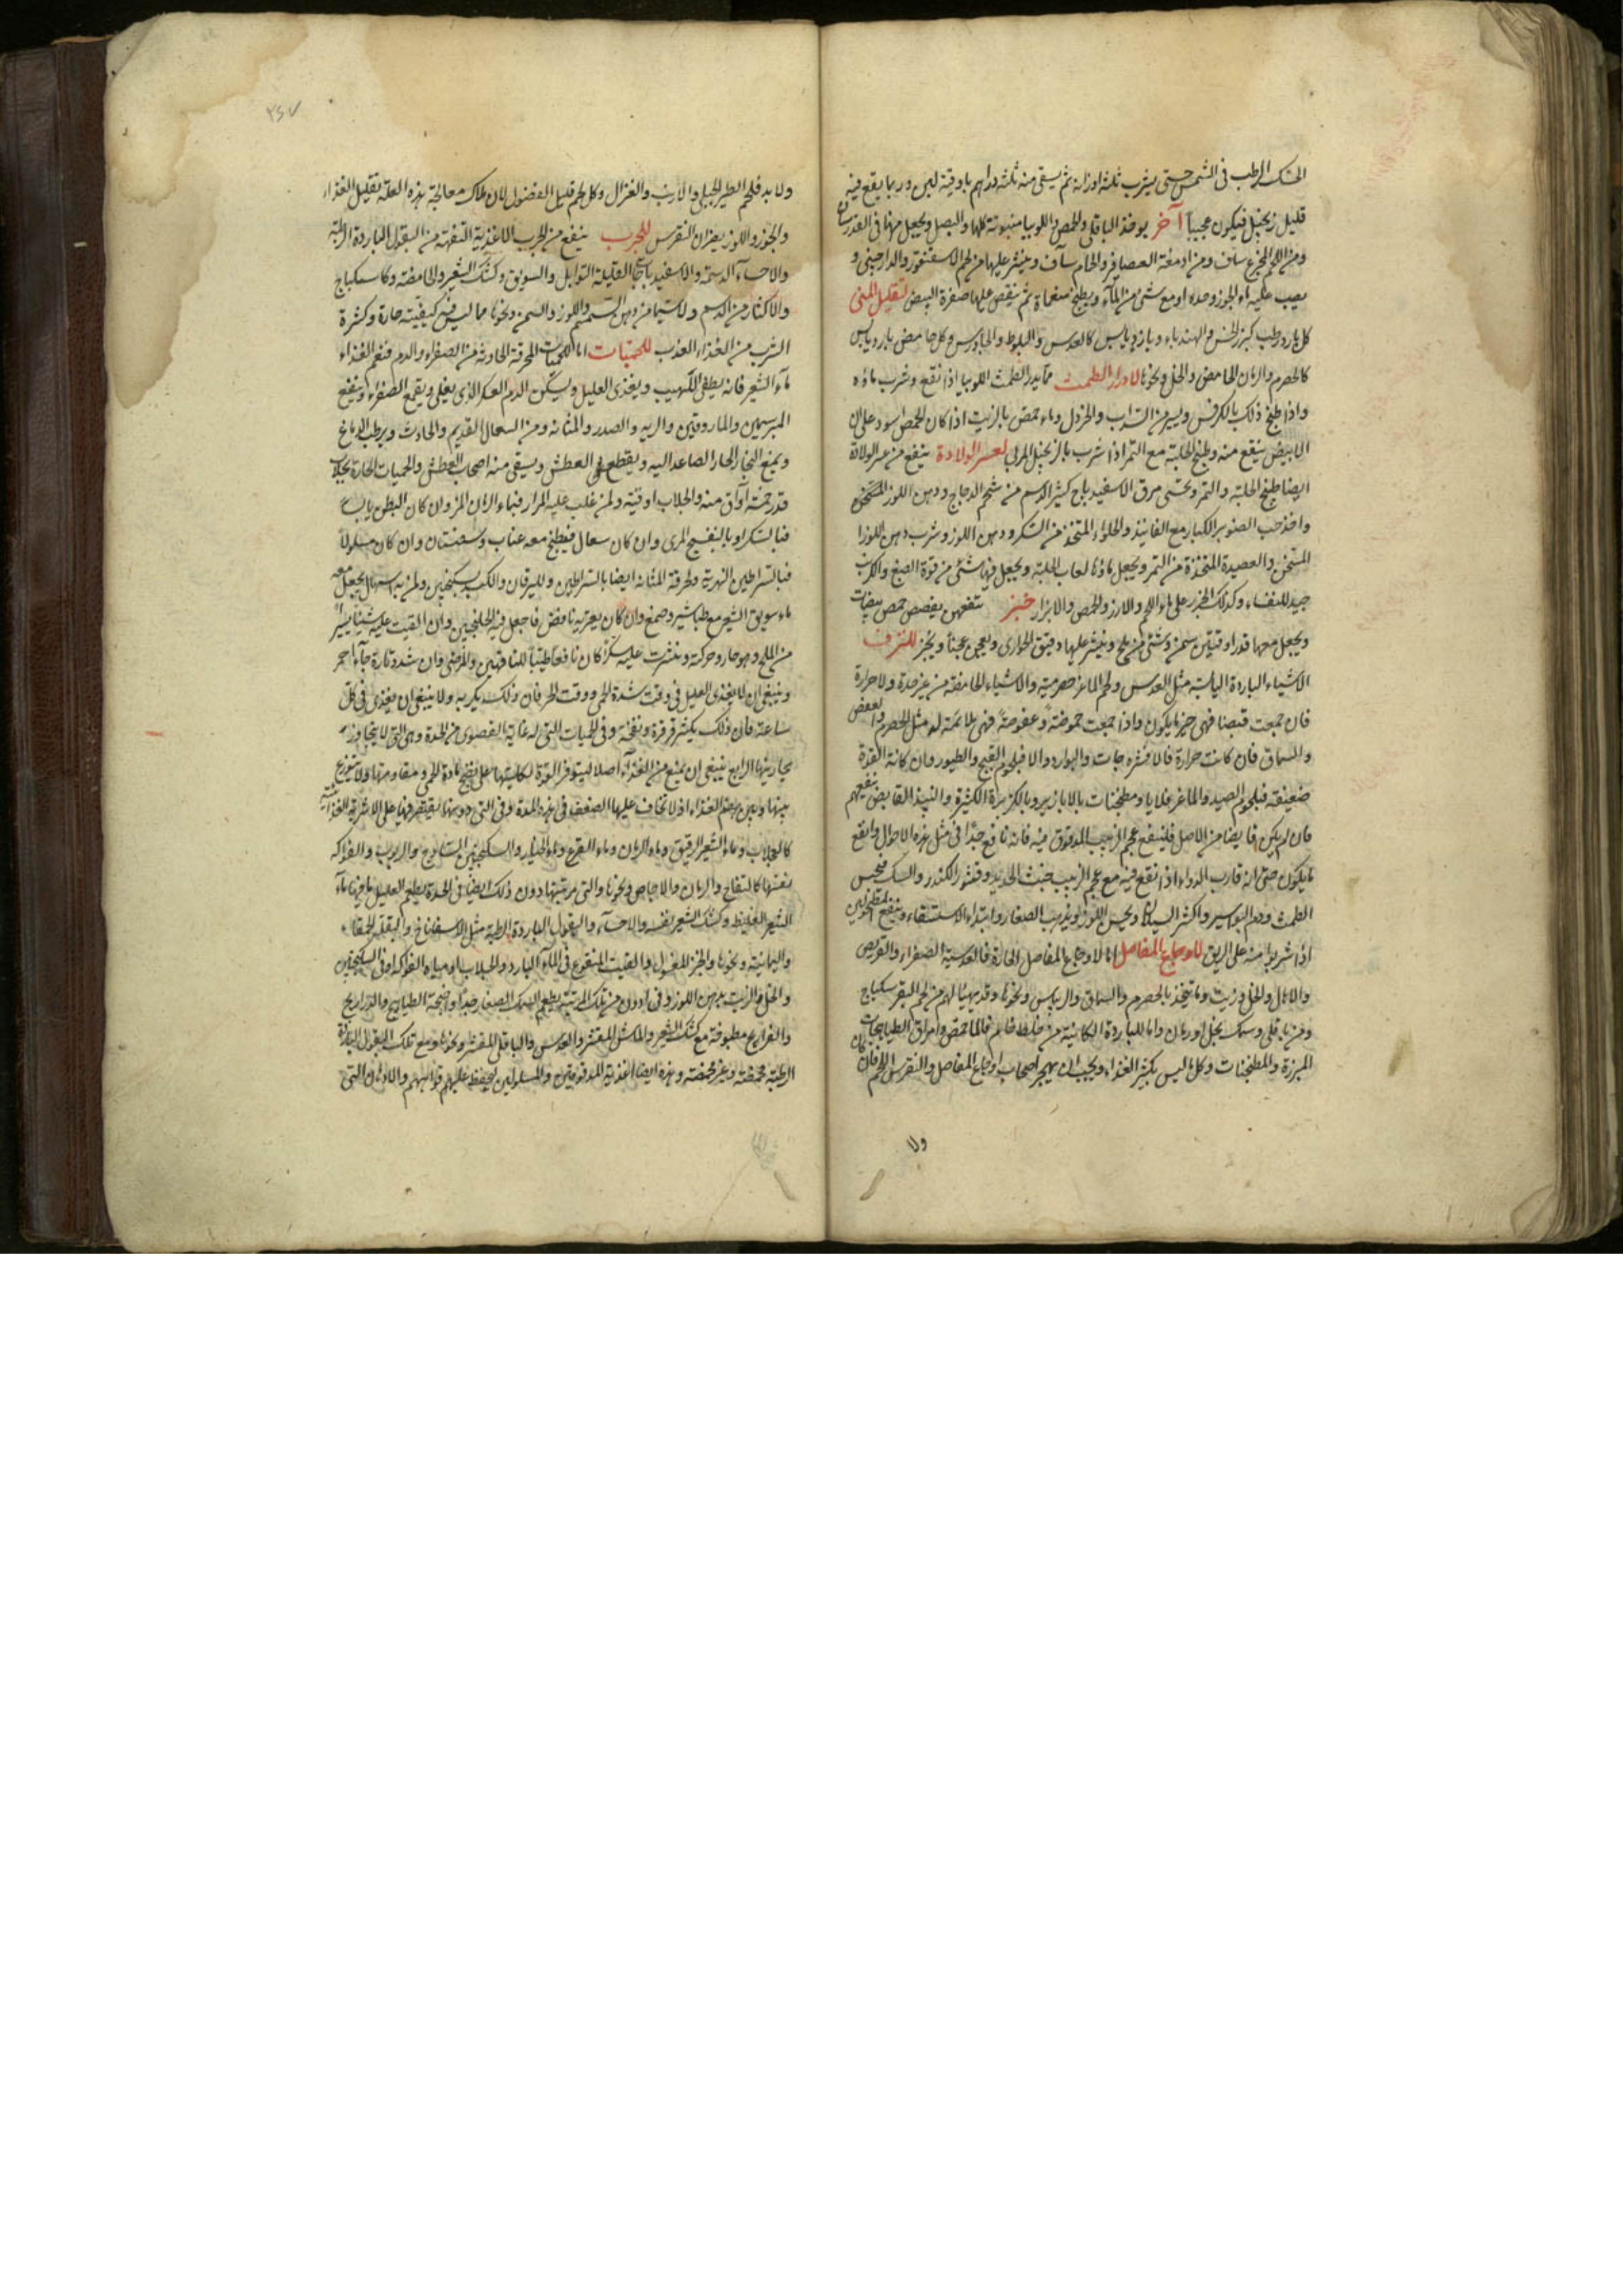 الحسك الرطب فى الشمس حتى يشرب ثلثة اوزانه ثم يسقى منه ثلثة دراهم باوقية لبن وربما يقع فيه
قليل زنجبيل فيكون عجيباً آخر يوخذ الباقلى والحمص واللوبيا منبوتة كلها والبصل ويجعل منها فى القدر ساف
ومن اللحم المجزع ساف ومن ادمغة العصافير والحمام ساف وينثر عليها من لحم الاسقنقور والدارچينى و
يصب عليه ماء الجوز وحده او مع شئ من الماء ويطبخ مغطاة ثم ينقص عليها صفرة البيض لتقليل المنى
كل بارد رطب كبزر الخس والهندباء وبارد يابس كالعدس والبلوط والجاورس وكل حامض بارد يابس
كالحصرم والرمان الحامض والخل ونحوها لادرار الطمث مما يدر الطمث اللوبيا اذا نقع وشرب ماؤه
واذا طبخ ذلك بالكرفس ويسير من السداب والخردل وماء حمص بالزيت اذا كان الحمص اسود على ان
الابيض ينفع منه وطبخ الحلبة مع التمر اذا شرب بالزنجبيل المربى لعسر الولادة ينفع من عسر الولادة
ايضا طبخ الحلبة والتمر وتحسى مرق الاسفيدباج كثير الدسم من شحم الدجاج ودهن اللوز المسخن
واخذ حب الصنوبر الكبار مع الفانيذ والحلواء المتخذ من السكر ودهن اللوز وشرب دهن اللوز
المسخن والعصيدة المتخذة من التمر ويجعل ماؤها لعاب الحلبة ويجعل فيها شئ من قوة الصبغ والكرنب
جيد للنفساء وكذلك الجزر على ماء اللحم والارز والحمص والابزار خبز ينفعهن بفصص خمس بيضات
ويجعل معها قدر اوقيتين سمن وشئ من ملح وينثر عليها دقيق الحوارى ويعجن عجناً ويخبز للنزف
الاشياء الباردة اليابسة مثل العدس ولحم الماعز حصرمية والاشياء الحامضة من غير حدة ولا حرارة
فان جمعت قبضا فهى خير ما يكون واذا جمعت حموضة وعفوصة فهى ملائمة له مثل الحصرم والعفص
والسماق فان كانت حرارة فالافشرجات والبوارد والا فبلحوم القبج والطيور وان كانت القوة
ضعيفة فبلحوم الصيد والماعز قلايا ومطجنات بالابازير وبالكزبرة الكثيرة والنبيذ القابض ينفعهم
فان لم يكن قابضا من الاصل فلينقع عجم الزبيب المدقوق فيه فانه نافع جدا فى مثل هذه الاحوال وانقع
ما يكون حتى انه قارب الدواء اذا نقع فيه مع عجم الزبيب خبث الحديد وقشور الكندر والسك فيحبس
الطمث ودم البواسير واكثر السيلان ويحبس اللوز ويذيب الصفار وابتداء الاستسقاء وينفع المطحولين
اذا شربوا منه على الريق لاوجاع المفاصل اما لاوجاع المفاصل الحارة فالعدسية الصفراء والقريص
والهلام والخل وزيت وما يتخذ بالحصرم والسماق والريباس ونحوها وقد يهيأ لهم من لحم البقر سكباج
ومن باقلى وسمك بخل او رمان واما الباردة الكائنة من خلط خام فالماء حمص وامراق الطياهيجات
المبزرة والمطجنات وكل ما ليس بكثير الغذاء ويجب ان يهجر اصحاب اوجاع المفاصل والنقرس اللحم فان كان
ولا
٢٤٧
ولا بد فلحم الطير الجبلى والارنب والغزال وكل لحم قليل الفضول لان ملاك معالجة هذه العلة تقليل الغذاء
والجوز واللوز يضران النقرس للجرب ينفع من الجرب الاغذية التفهة من البقول الباردة الرطبة
والاحساء الدسمة والاسفيدباج القليلة التوابل والسويق وكشك الشعير والحامضة وكاسكباج
والاكثار من الدسم ولا سيما من دهن السمسم واللوز والسمن ونحوها مما ليس فيه كيفية حارة وكثرة
الشرب من الغذاء العذب للحميات اما الحميات المحرقة الحادثة من الصفراء والدم فنعم الغذاء
ماء الشعير فانه يطفى اللهيب ويغذى العليل ويسكن الدم العكر الذى يغلى ويقمع الصفراء وينفع
المبرسمين والماروقين والريه والصدر والمثانه ومن السعال القديم والحادث ويرطب الدماغ
ويمنع البخار الحار الصاعد اليه ويقطع العطش ويسقى منه اصحاب العطش والحميات الحارة بجلاب
قدر خمسة اواق منه والجلاب اوقية ولمن غلب عليه المرار فبماء الرمان المز وان كان البطن يابسا
فبالسكر او بالبنفسج المربى وان كان سعال فيطبخ معه عناب وسبستان وان كان مسلولاً
فبالسراطين النهرية ولحرقة المثانه ايضا بالسراطين ولليرقان والكبد بسكنجبين ولمن به اسهال يجعل معه
ماء سويق الشعير مع طباشير وصمغ وان كان يعتريه نافض فاجعل فيه الخلنجبين وان القيت عليه شيئا يسيراً
من الملح وهو حار وحركته ونثرت عليه سكراً كان نافعا طيبا للناقهين والمرضى وان شددت نارة جاء احمر
وينبغى ان لا يغذى العليل فى وقت شدة الحمى ووقت الحر فان ذلك يكربه ولا ينبغى ان يغذى فى كل
ساعة فان ذلك يكثر قرقرة ونفخة وفى الحميات التى له غاية القصوى من الحدة وهى التى لا يتجاوز
بحارينها الرابع ينبغى ان يمنع من الغذاء اصلا ليتوفر القوة بكليتها على نضج مادة الحمى ومقاومتها ولا يتوزع
بينها وبين هضم الغذاء اذ لا يخاف عليها الضعف فى هذه المدة وفى التى دونها يقتصر فيها على الاشربة الغذائية
كالجلاب وماء الشعير الرقيق وماء الرمان وماء القرع وماء الخيار والسكنجبين الساذج والربوب والفواكه
بعينها كالتفاح والرمان والاجاص ونحوها والتى مرتبتها دون ذلك ايضا فى الحدة يطعم العليل ما فيها ماء
الشعير الغليظ وكشك الشعير نفسه والاحساء والبقول الباردة الرطبة مثل الاسفاناخ والبقلة الحمقاء
واليمانية ونحوها والخبز المغسول والفتيت المنقوع فى الماء البارد والجلاب او مياه الفواكه او فى السكنجبين
والخل والزيت بدهن اللوز وفى ادون من تلك المرتبة يطعم السمك الصغار جدا واجنحة الطياهيج والدراريج
والفراريج مطبوخة مع كشك الشعير والماش المقشر والعدس والباقلى المقشر ونحوها ومع تلك البقول الباردة
الرطبة محمضة وغير محمضة وهذه ايضا اغذية المدقوقين والمسلولين ليحفظ عليهم قوائهم والادهان التى